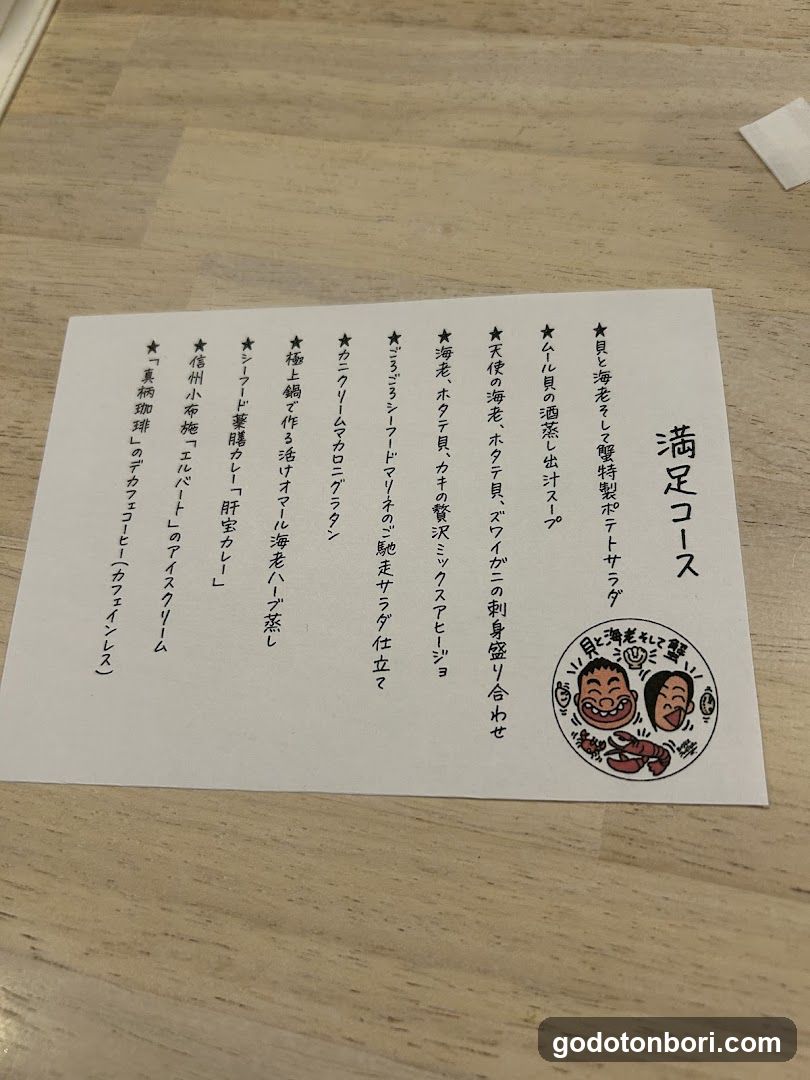 満足コース
★貝と海老そして蟹特製ポテトサラダ
★ムール貝の酒蒸し出汁スープ
★天使の海老、ホタテ貝、ズワイガニの刺身盛り合わせ
★海老、ホタテ貝、カキの贅沢ミックスアヒージョ
★ごろごろシーフードマリネのご馳走サラダ仕立て
★カニクリームマカロニグラタン
★極上鍋で作る活けオマール海老ハーブ蒸し
★シーフード薬膳カレー「肝宝カレー」
★信州小布施「エルバート」のアイスクリーム
★「真柄珈琲」のデカフェコーヒー(カフェインレス)
貝と海老そして蟹
godotonbori.com